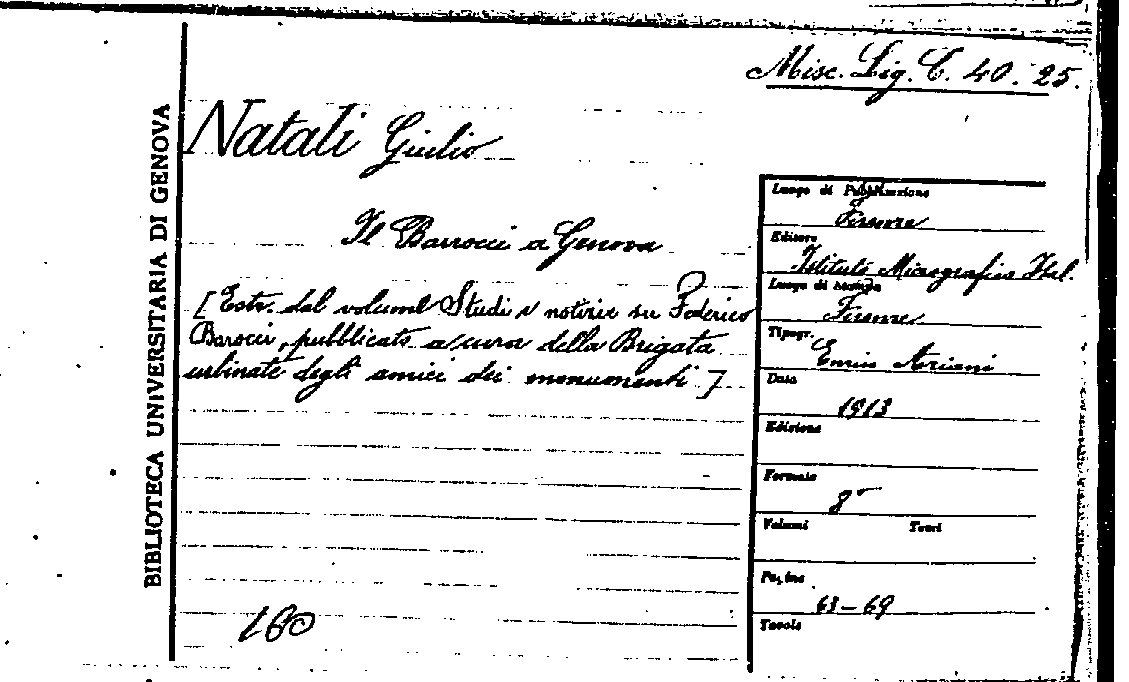 Misc. Lig. C. 40. 25.
BIBLIOTECA UNIVERSITARIA DI GENOVA
Natali Giulio
Il Barocci a Genova
[Estr. dal volume Studi e notizie su Federico
Barocci, pubblicato a cura della Brigata
urbinate degli amici dei monumenti]
160
Luogo di Pubblicazione
Firenze
Editore
Istituto Micrografico Ital.
Luogo di stampa
Firenze
Tipogr.
Enrico Ariani
Data
1913
Edizione
Formato
8°
Volumi Tomi
Pagine
63-69
Tavole